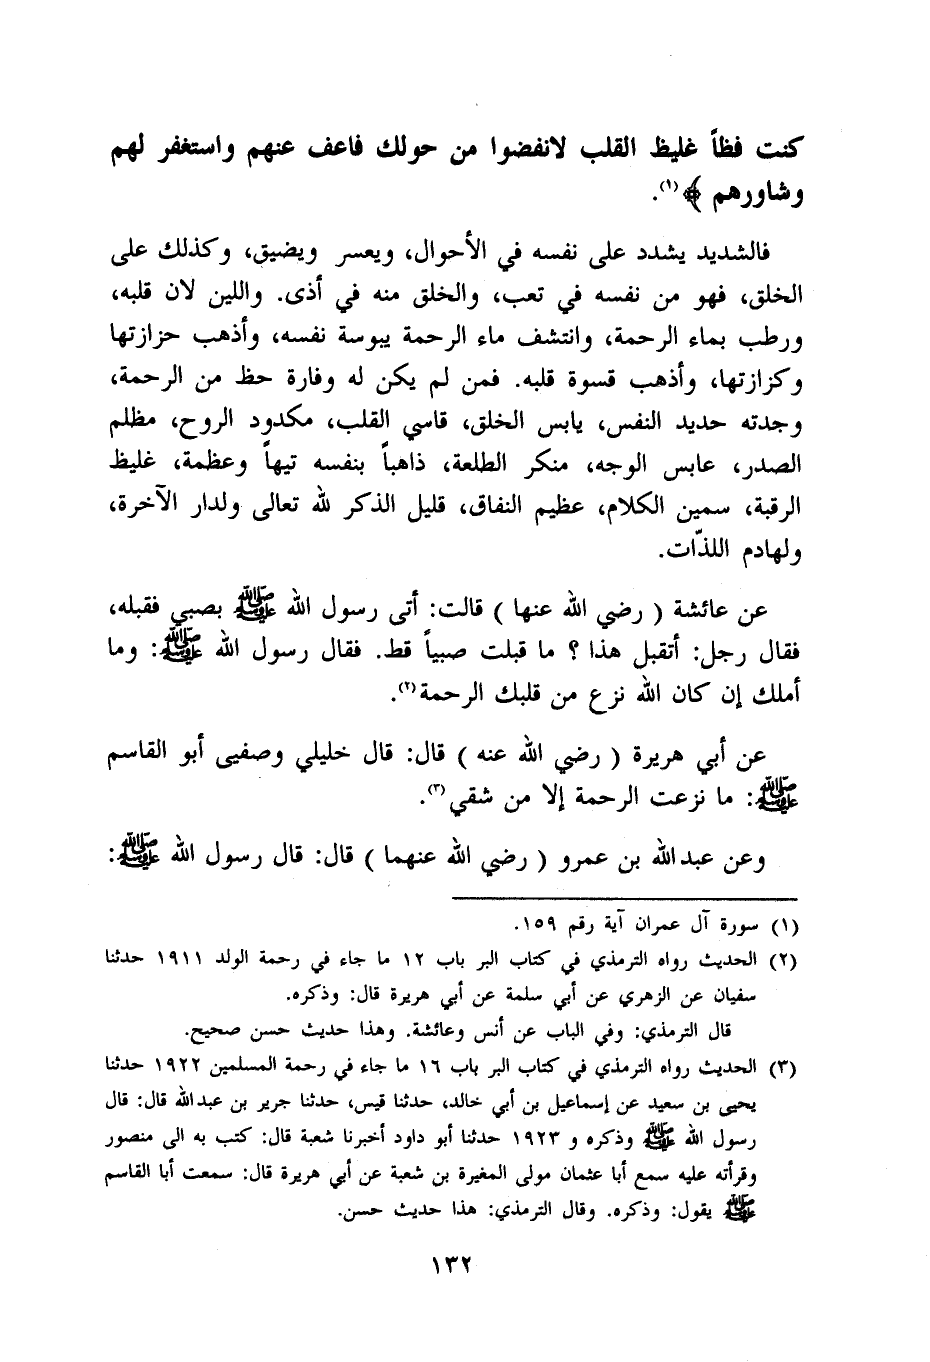 كنت فظاً غليظ القلب لانفضوا من حولك فاعف عنهم واستغفر لهم
وشاورهم ﴾(١).
فالشديد يشدد على نفسه في الأحوال، ويعسر ويضيق، وكذلك على
الخلق، فهو من نفسه في تعب، والخلق منه في أذى. واللين لان قلبه،
ورطب بماء الرحمة، وانتشف ماء الرحمة يبوسة نفسه، وأذهب حزازتها
وكزازتها، وأذهب قسوة قلبه. فمن لم يكن له وفارة حظ من الرحمة،
وجدته حديد النفس، يابس الخلق، قاسي القلب، مكدود الروح، مظلم
الصدر، عابس الوجه، منكر الطلعة، ذاهباً بنفسه تيهاً وعظمة، غليظ
الرقبة، سمين الكلام، عظيم النفاق، قليل الذكر لله تعالى ولدار الآخرة،
ولهادم اللذّات.
عن عائشة ( رضي الله عنها ) قالت: أتى رسول الله ﷺ بصبي فقبله،
فقال رجل: أتقبل هذا ؟ ما قبلت صبياً قط. فقال رسول الله ﷺ: وما
أملك إن كان الله نزع من قلبك الرحمة(٢).
عن أبي هريرة ( رضي الله عنه ) قال: قال خليلي وصفيي أبو القاسم
ﷺ: ما نزعت الرحمة إلا من شقي(٣).
وعن عبدالله بن عمرو ( رضي الله عنهما ) قال: قال رسول الله ﷺ:
(١) سورة آل عمران آية رقم ١٥٩.
(٢) الحديث رواه الترمذي في كتاب البر باب ١٢ ما جاء في رحمة الولد ١٩١١ حدثنا
سفيان عن الزهري عن أبي سلمة عن أبي هريرة قال: وذكره.
قال الترمذي: وفي الباب عن أنس وعائشة. وهذا حديث حسن صحيح.
(٣) الحديث رواه الترمذي في كتاب البر باب ١٦ ما جاء في رحمة المسلمين ١٩٢٢ حدثنا
يحيى بن سعيد عن إسماعيل بن أبي خالد، حدثنا قيس، حدثنا جرير بن عبدالله قال: قال
رسول الله ﷺ وذكره و ١٩٢٣ حدثنا أبو داود أخبرنا شعبة قال: كتب به الى منصور
وقرأته عليه سمع أبا عثمان مولى المغيرة بن شعبة عن أبي هريرة قال: سمعت أبا القاسم
ﷺ يقول: وذكره. وقال الترمذي: هذا حديث حسن.
١٣٢